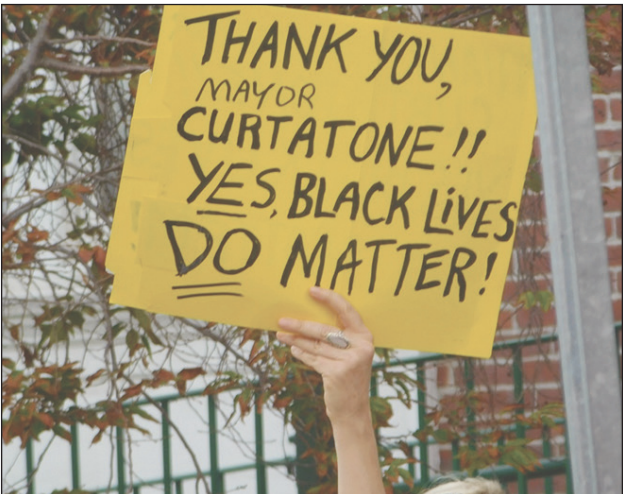 THANK YOU,
MAYOR
CURTATONE!!
YES, BLACK LiVES
DO MATTER!